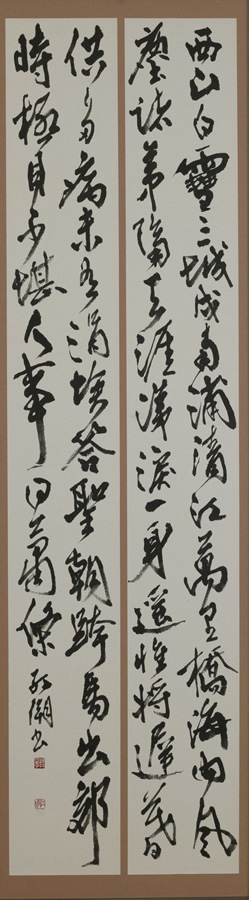 西山白雪三城戍南浦清江萬里橋海內風
塵諸弟隔天涯涕淚一身遙惟將遲暮
供多病未有涓埃答聖朝跨馬出郊
時極目不堪人事日蕭條 書